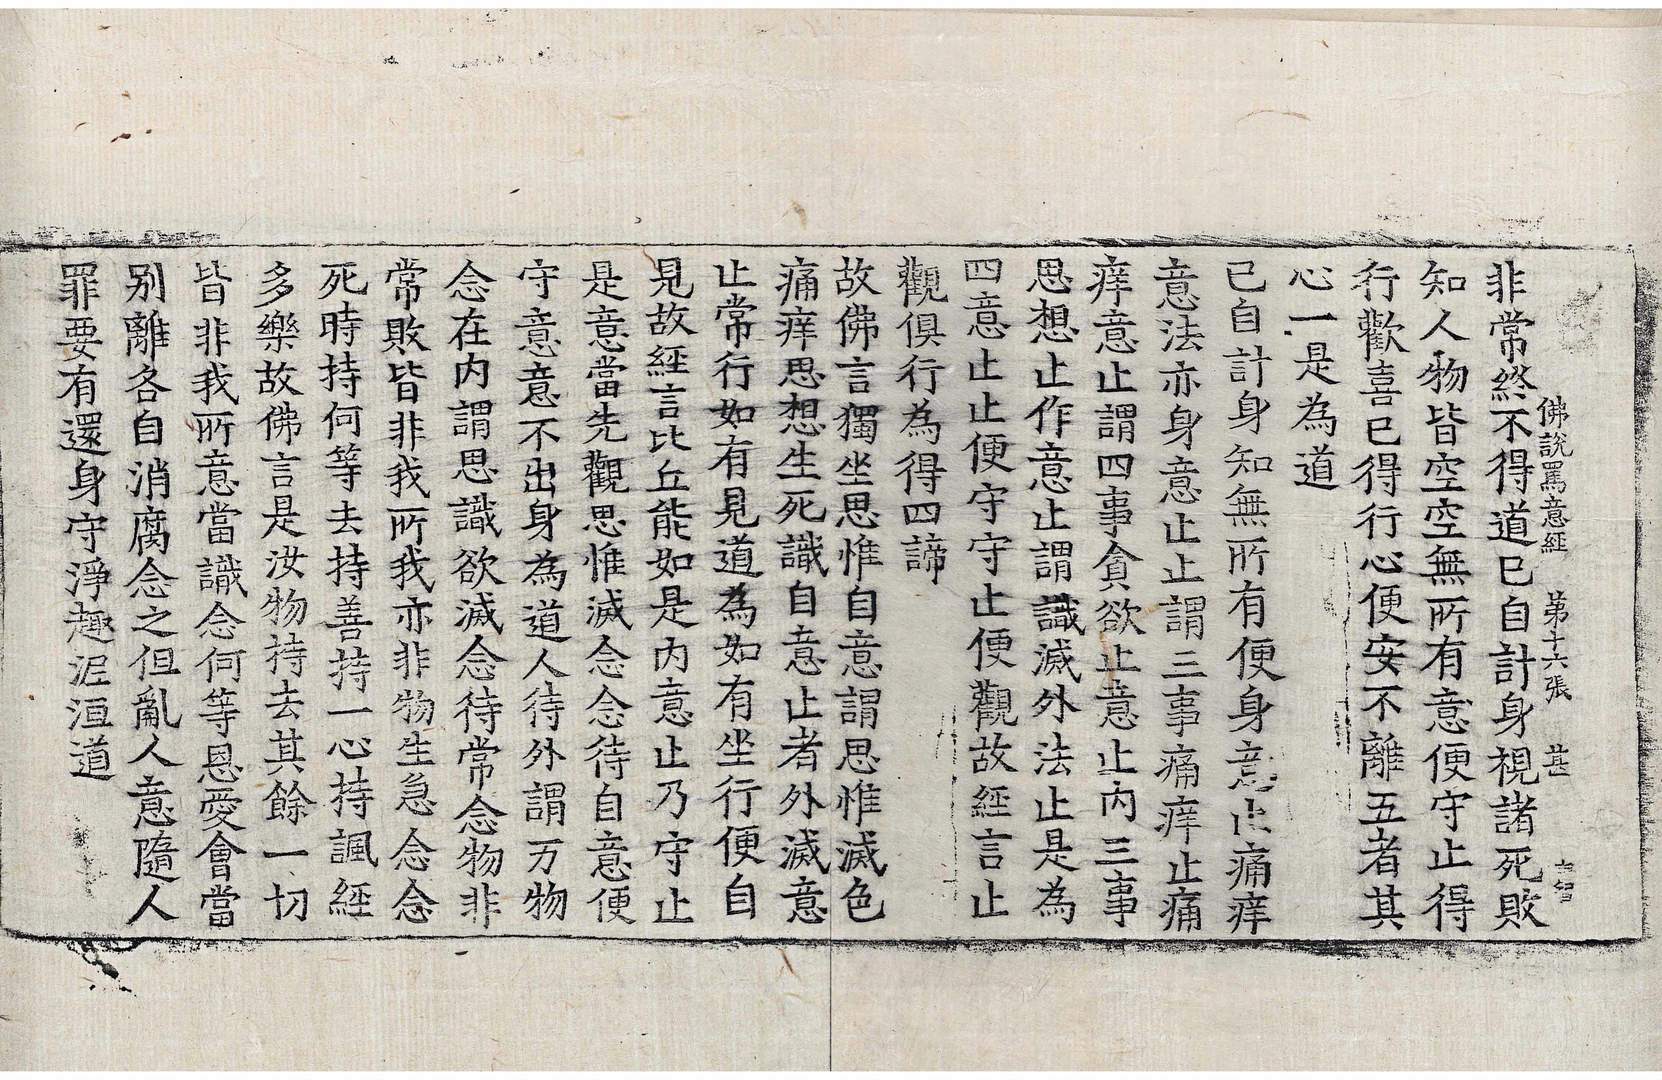 佛說罵意經 第十六張 甚
非常終不得道已自計身視諸死敗
知人物皆空空無所有意便守止得
行歡喜已得行心便安不離五者其
心一是為道
已自計身知無所有便身意止痛痒
意法亦身意止止謂三事痛痒止痛
痒意止謂四事貪欲止意止內三事
思想止作意止謂識滅外法止是為
四意止止便守守止便觀故經言止
觀俱行為得四諦
故佛言獨坐思惟自意謂思惟滅色
痛痒思想生死識自意止者外滅意
止常行如有見道為如有坐行便自
見故經言比丘能如是內意止乃守止
是意當先觀思惟滅念念待自意便
守意意不出身為道人待外謂万物
念在內謂思識欲滅念待常念物非
常敗皆非我所我亦非物生急念念
死時持何等去持善持一心持諷經
多樂故佛言是汝物持去其餘一切
皆非我所意當識念何等恩愛會當
別離各自消腐念之但亂人意隨人
罪要有還身守淨趣泥洹道